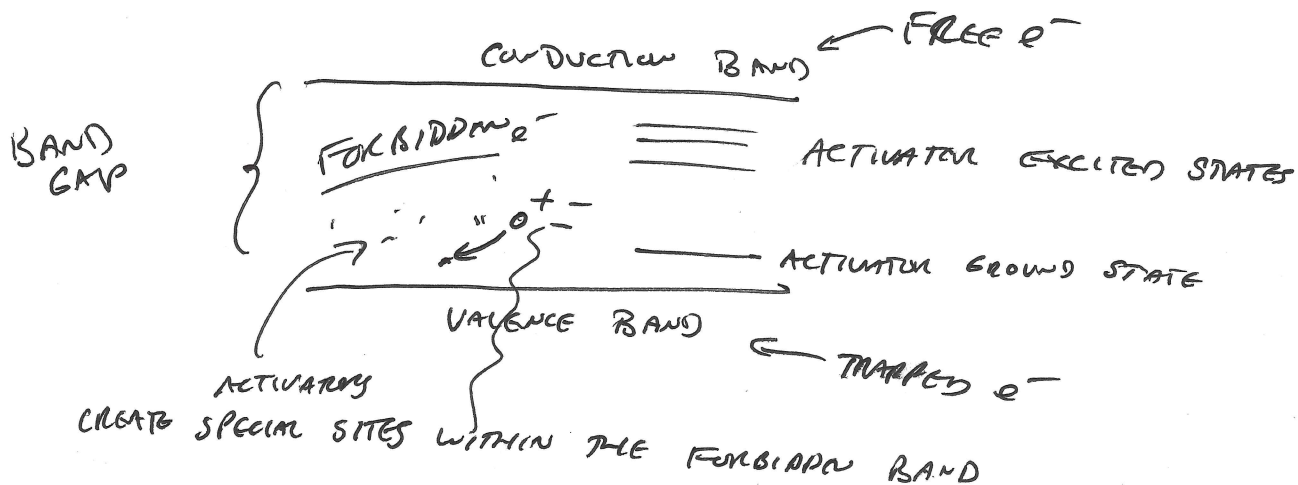 FREE e⁻
CONDUCTION BAND
BAND
GAP
FORBIDDEN e⁻
ACTIVATOR EXCITED STATES
+ -
-
ACTIVATOR GROUND STATE
VALENCE BAND
TRAPPED e⁻
ACTIVATORS
CREATE SPECIAL SITES WITHIN THE FORBIDDN BAND